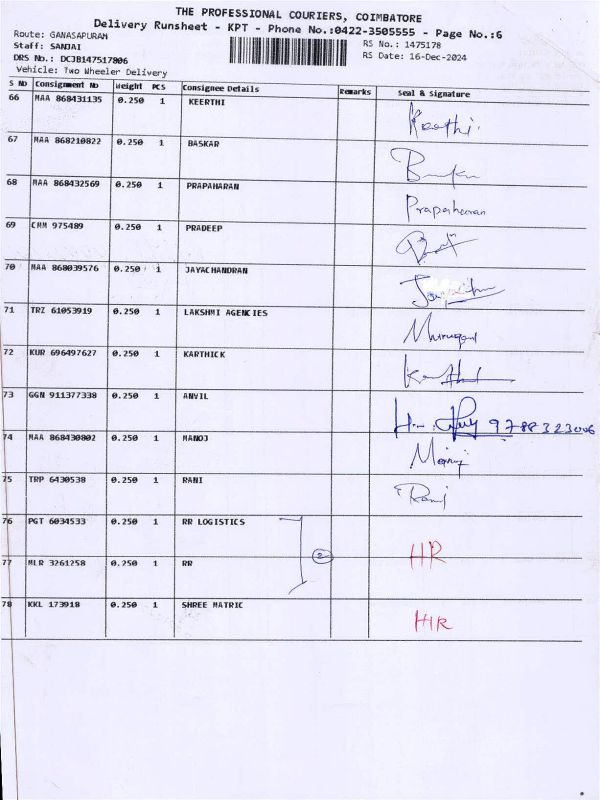 THE PROFESSIONAL COURIERS, COIMBATORE
Delivery Runsheet - KPT - Phone No.:0422-3505555 - Page No.:6
Route: GANASAPURAM
RS No.: 1475178
Staff: SANJAI
RS Date: 16-Dec-2024
DRS No.: DCJB147517806
Vehicle: Two Wheeler Delivery
S No Consignment No Weight PCS Consignee Details Remarks Seal & Signature
66 MAA 868431135 0.250 1 KEERTHI Keerthi
67 MAA 868210822 0.250 1 BASKAR
68 MAA 868432569 0.250 1 PRAPAHARAN Prapaharan
69 CMM 975489 0.250 1 PRADEEP
70 MAA 868039576 0.250 1 JAYACHANDRAN
71 TRZ 61053919 0.250 1 LAKSHMI AGENCIES Murugan
72 KUR 696497627 0.250 1 KARTHICK
73 GGN 911377338 0.250 1 ANVIL 9788323006
74 MAA 868430802 0.250 1 MANOJ Manoj
75 TRP 6430538 0.250 1 RANI Rani
76 PGT 6034533 0.250 1 RR LOGISTICS
2 HR
77 MLR 3261258 0.250 1 RR
78 KKL 173918 0.250 1 SHREE MATRIC HR